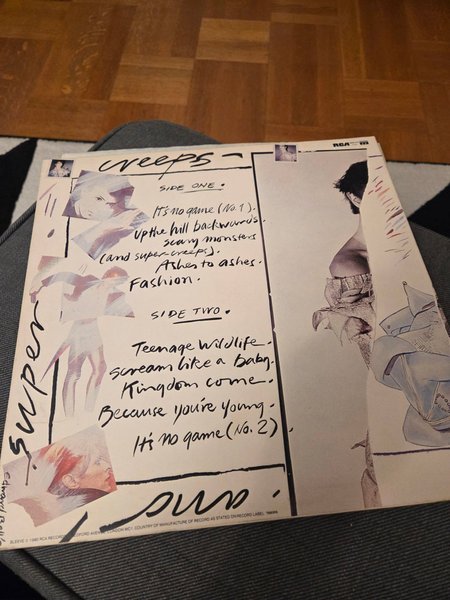 creeps
RCA
SIDE ONE.
It's no game (No. 1).
Up the hill backwards.
scary monsters
(and super creeps).
Ashes to ashes.
Fashion.
SIDE TWO.
Teenage Wildlife.
scream like a baby.
Kingdom come.
Because you're young.
It's no game (No. 2).
super
and
SLEEVE 1980 RCA RECORDS COUNTRY OF MANUFACTURE OF RECORD AS STATED ON RECORD LABEL